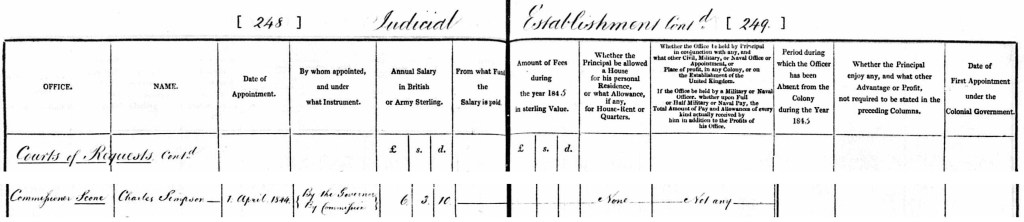 [ 248 ] Judicial Establishment Cont.d [ 249. ]
OFFICE.
NAME.
Date of
Appointment.
By whom appointed,
and under
what Instrument.
Annual Salary
in British
or Army Sterling.
From what Fund
the
Salary is paid.
Amount of Fees
during
the year 1845
in sterling Value.
Whether the
Principal be allowed
a House
for his personal
Residence,
or what Allowance,
if any,
for House-Rent or
Quarters.
Whether the Office be held by Principal
in conjunction with any, and
what other Civil, Military, or Naval Office or
Appointment, or
Place of profit, in any Colony, or on
the Establishment of the
United Kingdom.
If the Office be held by a Military or Naval
Officer, whether upon Full
or Half Military or Naval Pay, the
Total Amount of Pay and Allowances of every
kind actually received by
him in addition to the Profits of
his Office.
Period during
which the Officer
has been
Absent from the
Colony
during the Year
1845
Whether the Principal
enjoy any, and what other
Advantage or Profit,
not required to be stated in the
preceding Columns.
Date of
First Appointment
under the
Colonial Government.
Courts of Requests Contd
£ s. d.
£ s. d.
Commissioner Scone
Charles Simpson
1. April 1844
By the Governor
By Commission
6 3. 10
None
Not any